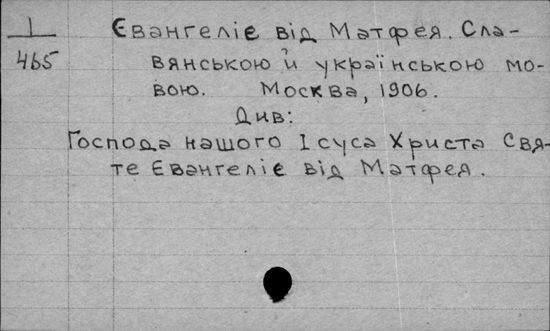 I
465
Євангеліє від Матфея. Сла-
вянською й українською мо-
вою. Москва, 1906.
Див:
Господа нашого Ісуса Христа Свя-
те Євангеліє від Матфея.